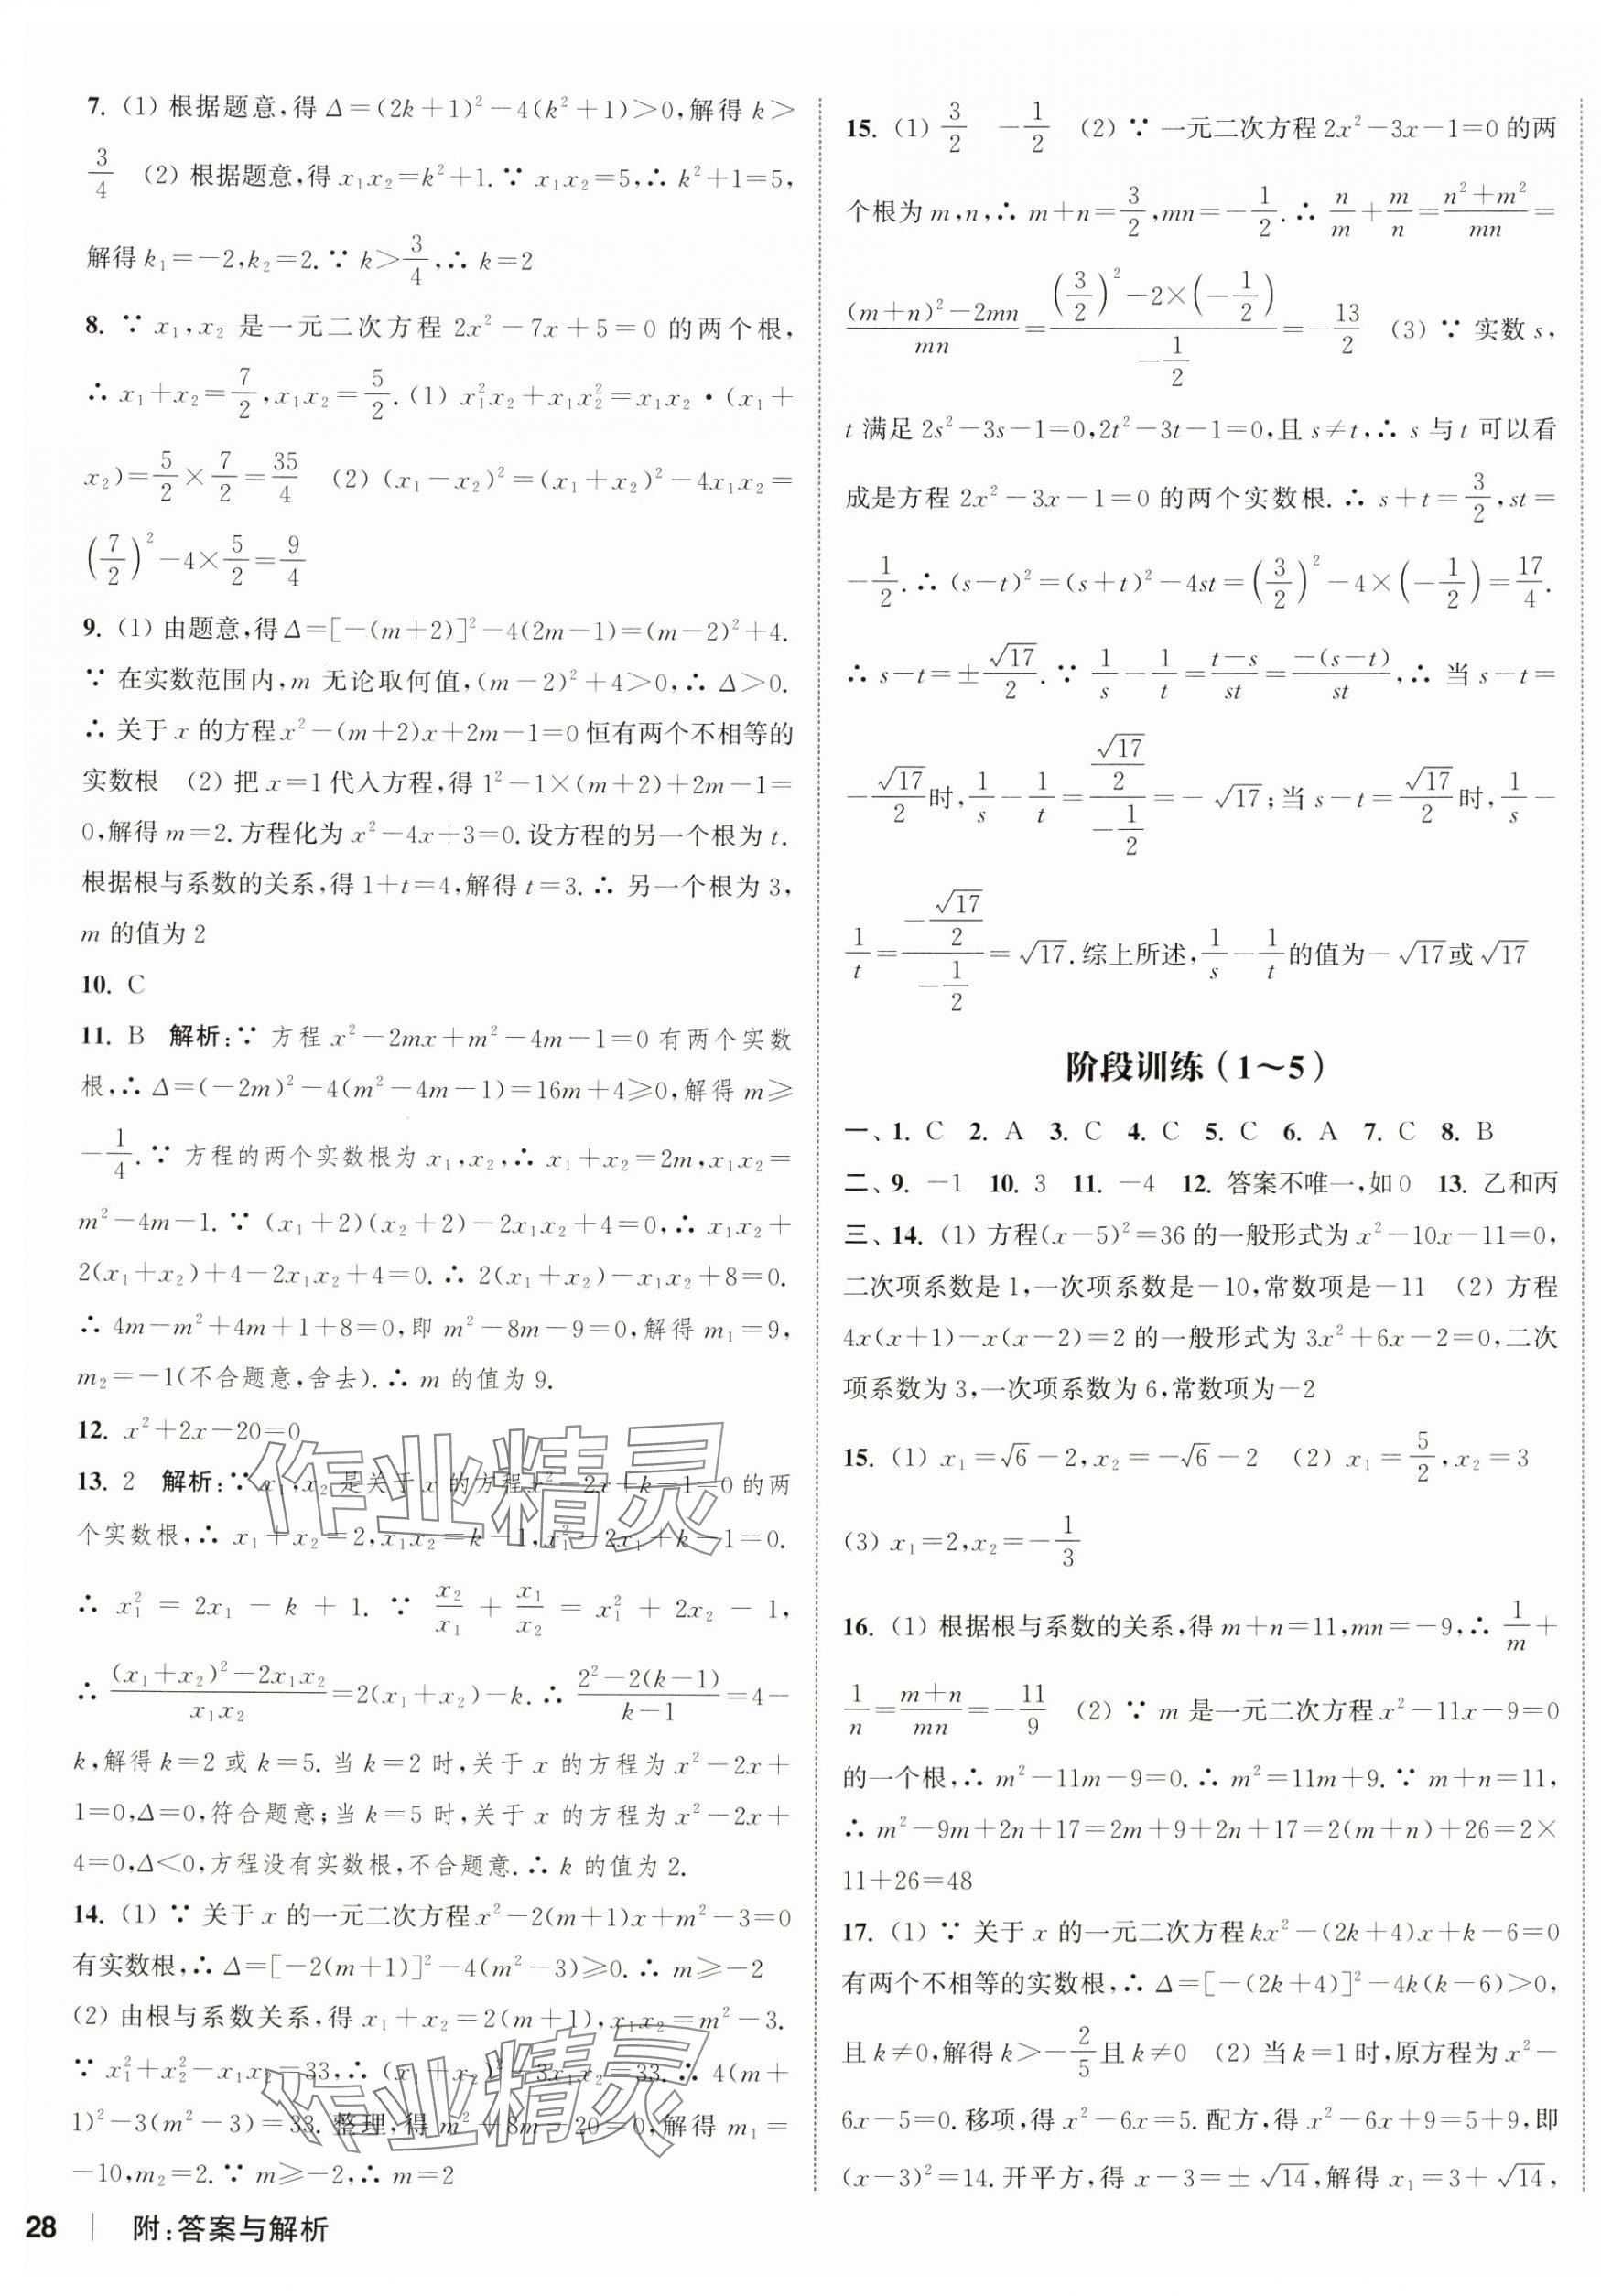 7. (1) 根据题意,得 Δ=(2k+1)²-4(k²+1)>0,解得 k>
3/4  (2) 根据题意,得 x₁x₂=k²+1. ∵ x₁x₂=5,∴ k²+1=5,
解得 k₁=-2,k₂=2. ∵ k>3/4,∴ k=2
8. ∵ x₁,x₂ 是一元二次方程 2x²-7x+5=0 的两个根,
∴ x₁+x₂=7/2,x₁x₂=5/2. (1) x₁²x₂+x₁x₂²=x₁x₂·(x₁+
x₂)=5/2×7/2=35/4  (2) (x₁-x₂)²=(x₁+x₂)²-4x₁x₂=
(7/2)²-4×5/2=9/4
9. (1) 由题意,得 Δ=[-(m+2)]²-4(2m-1)=(m-2)²+4.
∵ 在实数范围内,m 无论取何值,(m-2)²+4>0,∴ Δ>0.
∴ 关于 x 的方程 x²-(m+2)x+2m-1=0 恒有两个不相等的
实数根  (2) 把 x=1 代入方程,得 1²-1×(m+2)+2m-1=
0,解得 m=2. 方程化为 x²-4x+3=0. 设方程的另一个根为 t.
根据根与系数的关系,得 1+t=4,解得 t=3. ∴ 另一个根为 3,
m 的值为 2
10. C
11. B  解析:∵ 方程 x²-2mx+m²-4m-1=0 有两个实数
根,∴ Δ=(-2m)²-4(m²-4m-1)=16m+4≥0,解得 m≥
-1/4. ∵ 方程的两个实数根为 x₁,x₂,∴ x₁+x₂=2m,x₁x₂=
m²-4m-1. ∵ (x₁+2)(x₂+2)-2x₁x₂+4=0,∴ x₁x₂+
2(x₁+x₂)+4-2x₁x₂+4=0. ∴ 2(x₁+x₂)-x₁x₂+8=0.
∴ 4m-m²+4m+1+8=0,即 m²-8m-9=0,解得 m₁=9,
m₂=-1(不合题意,舍去). ∴ m 的值为 9.
12. x²+2x-20=0
13. 2  解析:∵ x₁,x₂ 是关于 x 的方程 x²-2x+k-1=0 的两
个实数根,∴ x₁+x₂=2,x₁x₂=k-1,x₁²-2x₁+k-1=0.
∴ x₁²=2x₁-k+1. ∵ x₂/x₁+x₁/x₂=x₁²+2x₂-1,
∴ ((x₁+x₂)²-2x₁x₂)/(x₁x₂)=2(x₁+x₂)-k. ∴ (2²-2(k-1))/(k-1)=4-
k,解得 k=2 或 k=5. 当 k=2 时,关于 x 的方程为 x²-2x+
1=0,Δ=0,符合题意;当 k=5 时,关于 x 的方程为 x²-2x+
4=0,Δ<0,方程没有实数根,不合题意. ∴ k 的值为 2.
14. (1) ∵ 关于 x 的一元二次方程 x²-2(m+1)x+m²-3=0
有实数根,∴ Δ=[-2(m+1)]²-4(m²-3)≥0. ∴ m≥-2
(2) 由根与系数关系,得 x₁+x₂=2(m+1),x₁x₂=m²-3.
∵ x₁²+x₂²-x₁x₂=33,∴ (x₁+x₂)²-3x₁x₂=33. ∴ 4(m+
1)²-3(m²-3)=33. 整理,得 m²+8m-20=0,解得 m₁=
-10,m₂=2. ∵ m≥-2,∴ m=2
28 | 附:答案与解析
15. (1) 3/2  -1/2  (2) ∵ 一元二次方程 2x²-3x-1=0 的两
个根为 m,n,∴ m+n=3/2,mn=-1/2. ∴ n/m+m/n=(n²+m²)/(mn)=
((m+n)²-2mn)/(mn)=((3/2)²-2×(-1/2))/(-1/2)=-13/2  (3) ∵ 实数 s,
t 满足 2s²-3s-1=0,2t²-3t-1=0,且 s≠t,∴ s 与 t 可以看
成是方程 2x²-3x-1=0 的两个实数根. ∴ s+t=3/2,st=
-1/2. ∴ (s-t)²=(s+t)²-4st=(3/2)²-4×(-1/2)=17/4.
∴ s-t=±√17/2. ∵ 1/s-1/t=(t-s)/(st)=(-(s-t))/(st),∴ 当 s-t=
-√17/2 时,1/s-1/t=(√17/2)/(-1/2)=-√17;当 s-t=√17/2 时,1/s-
1/t=(-√17/2)/(-1/2)=√17. 综上所述,1/s-1/t 的值为 -√17 或 √17
阶段训练(1~5)
一、1. C  2. A  3. C  4. C  5. C  6. A  7. C  8. B
二、9. -1  10. 3  11. -4  12. 答案不唯一,如 0  13. 乙和丙
三、14. (1) 方程(x-5)²=36 的一般形式为 x²-10x-11=0,
二次项系数是 1,一次项系数是-10,常数项是-11  (2) 方程
4x(x+1)-x(x-2)=2 的一般形式为 3x²+6x-2=0,二次
项系数为 3,一次项系数为 6,常数项为-2
15. (1) x₁=√6-2,x₂=-√6-2  (2) x₁=5/2,x₂=3
(3) x₁=2,x₂=-1/3
16. (1) 根据根与系数的关系,得 m+n=11,mn=-9,∴ 1/m+
1/n=(m+n)/(mn)=-11/9  (2) ∵ m 是一元二次方程 x²-11x-9=0
的一个根,∴ m²-11m-9=0. ∴ m²=11m+9. ∵ m+n=11,
∴ m²-9m+2n+17=2m+9+2n+17=2(m+n)+26=2×
11+26=48
17. (1) ∵ 关于 x 的一元二次方程 kx²-(2k+4)x+k-6=0
有两个不相等的实数根,∴ Δ=[-(2k+4)]²-4k(k-6)>0,
且 k≠0,解得 k>-2/5 且 k≠0  (2) 当 k=1 时,原方程为 x²-
6x-5=0. 移项,得 x²-6x=5. 配方,得 x²-6x+9=5+9,即
(x-3)²=14. 开平方,得 x-3=±√14,解得 x₁=3+√14,
作业精灵
作业精灵